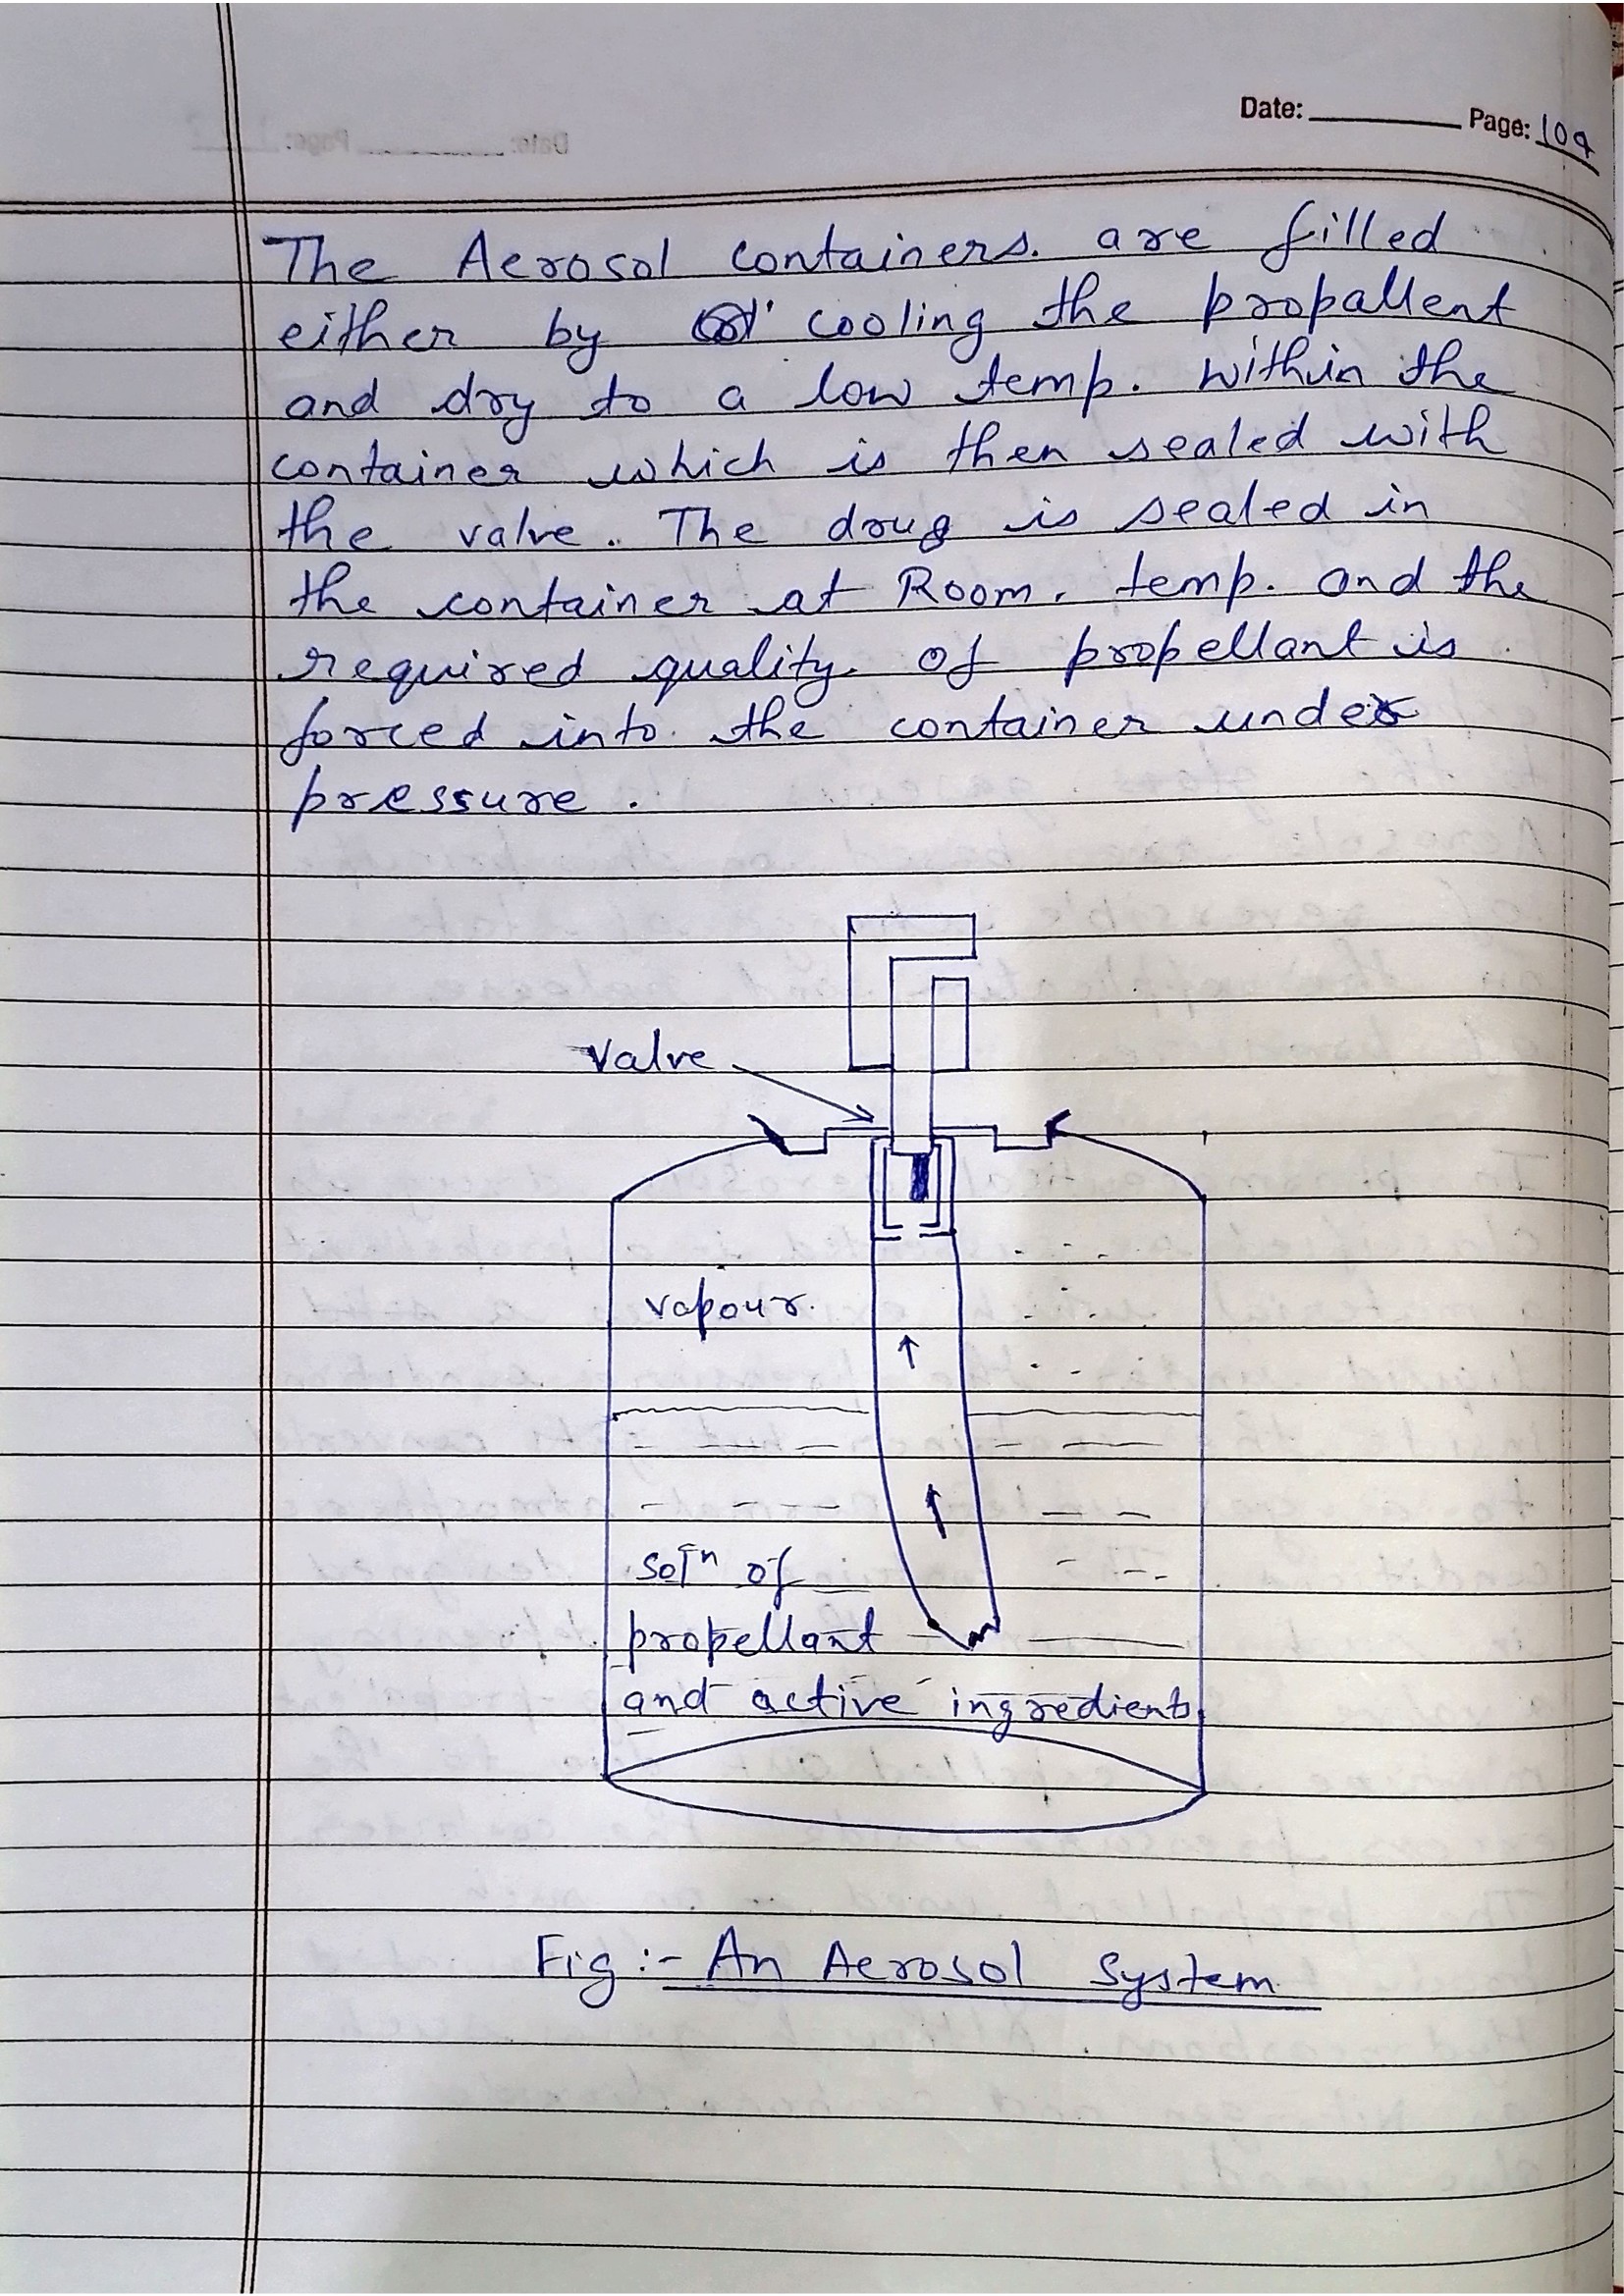 Date: Page: 109
The Aerosol containers. are filled
either by cooling the propallent
and dry to a low temp. within the
container which is then sealed with
the valve. The drug is sealed in
the container at Room. temp. and the
required quality. of propellant is
forced into the container under
pressure.
Valve
vapour.
solⁿ of
propellant
and active ingredients
Fig :- An Aerosol System